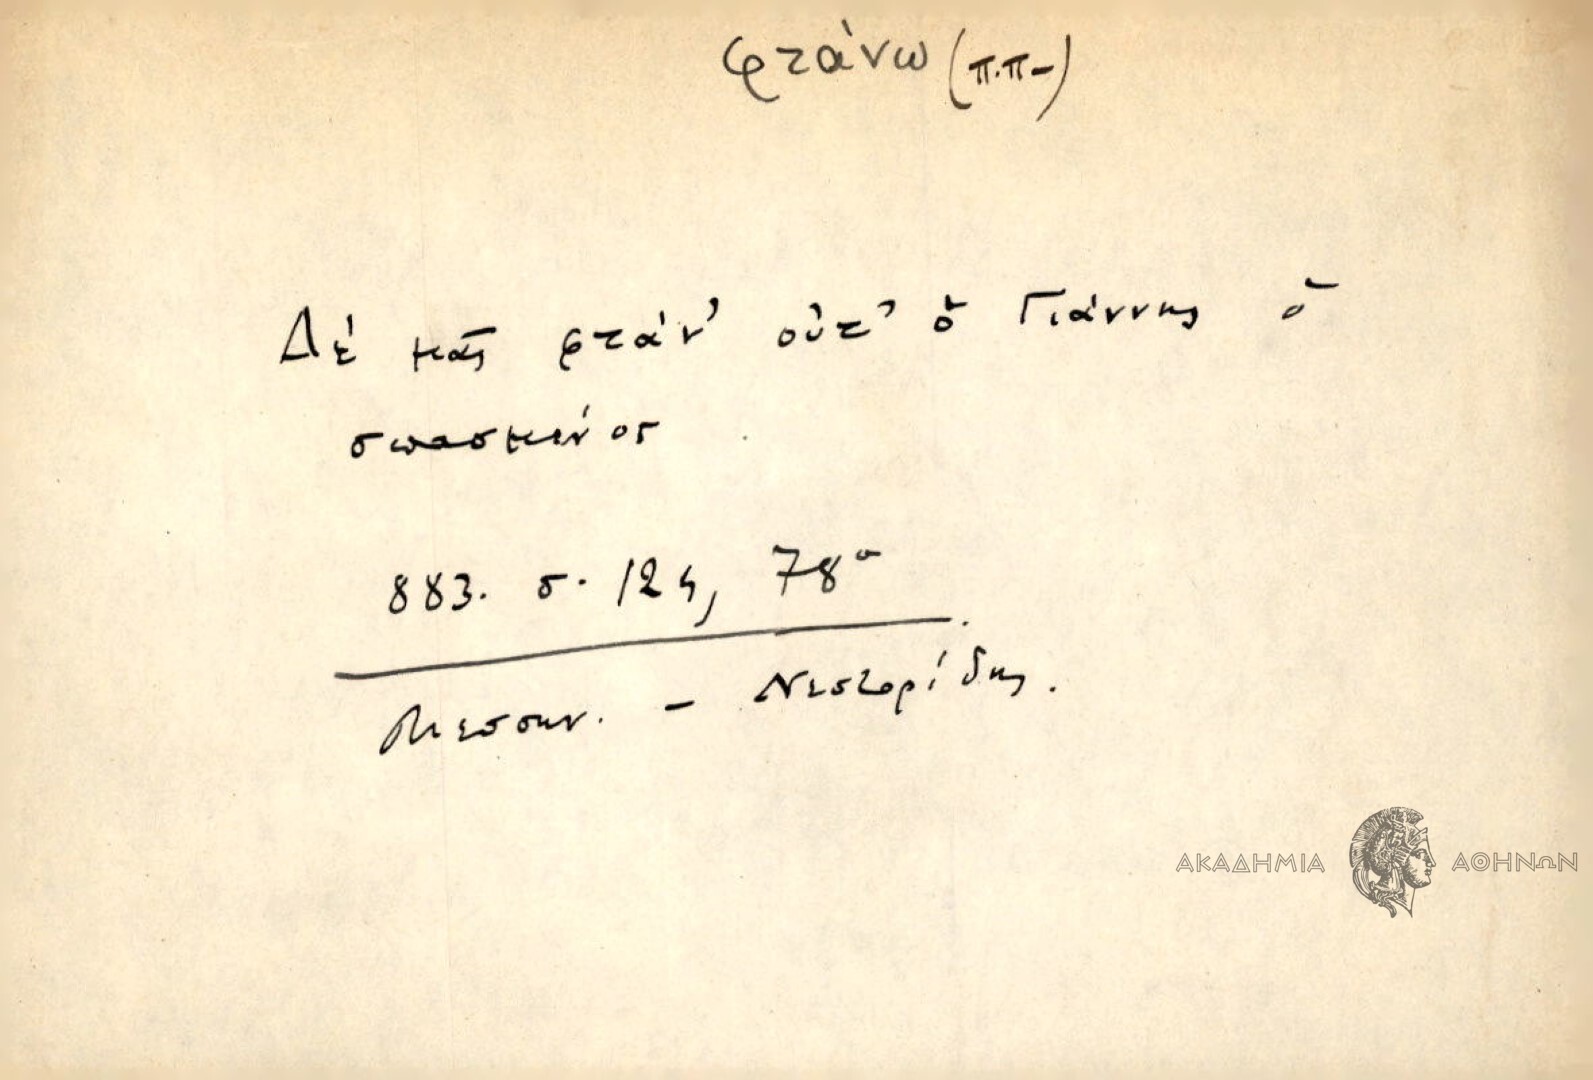 φτάνω (π.π-)
Δέ μᾶς φτάν' οὔτ' ὁ Γιάννης ὁ
σπασμένος
883. σ. 124, 78α
Μεσσην. - Νεστορίδης.
ΑΚΑΔΗΜΙΑ ΑΘΗΝΩΝ